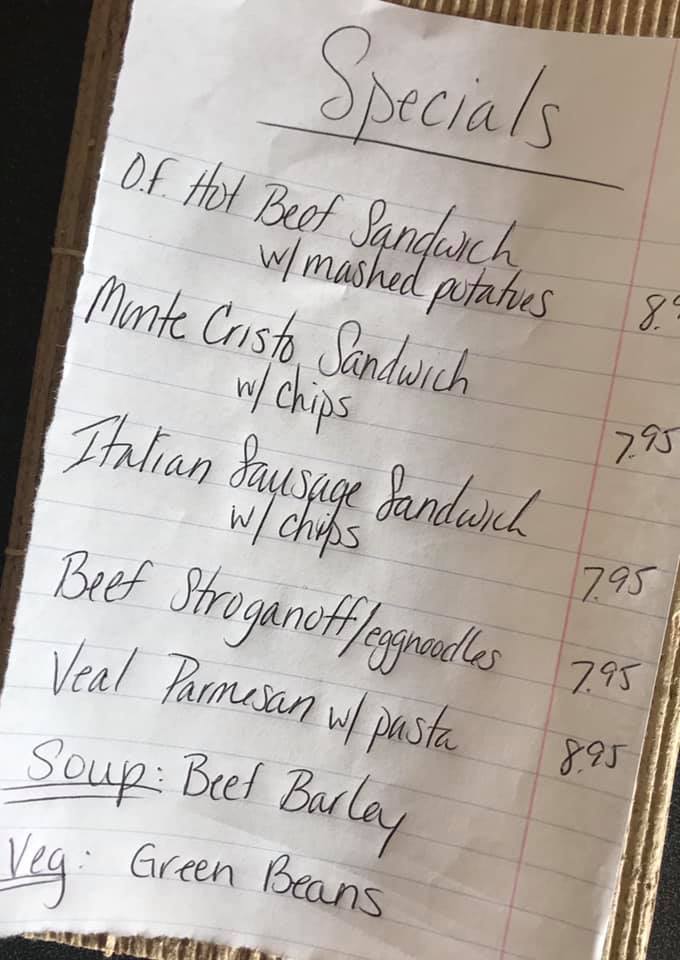 Specials
O.F. Hot Beef Sandwich
w/ mashed potatoes 8.9
Monte Cristo Sandwich
w/ chips
7.95
Italian Sausage Sandwich
w/ chips
7.95
Beef Stroganoff/eggnoodles 7.95
Veal Parmesan w/ pasta 8.95
Soup: Beef Barley
Veg: Green Beans